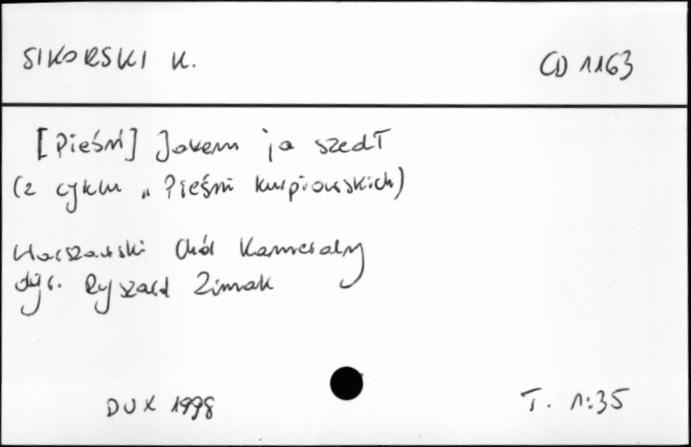 SIKORSKI K.
CD 1163
[Pieśń] Jakem ja szedł
(z cyklu „Pieśni kurpiowskich)
Warszawski Chór Kameralny
dyr. Ryszard Zimak
DUX 1998
T. 1:35